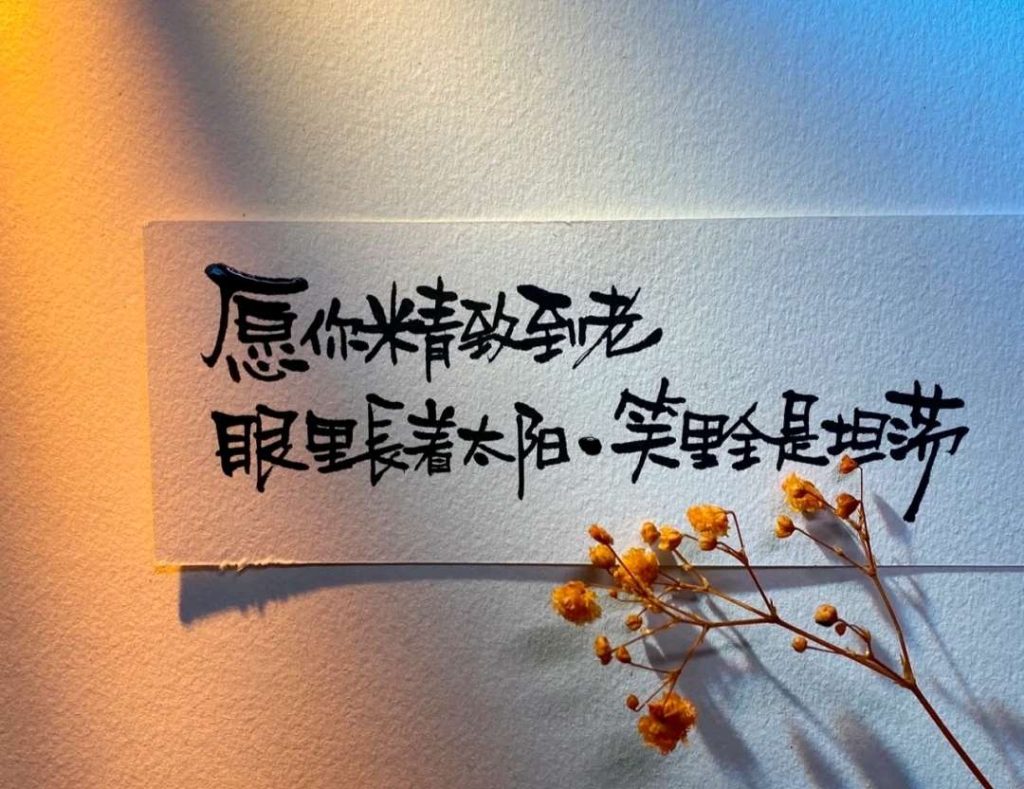 愿你精致到老
眼里長着太阳·笑里全是坦荡